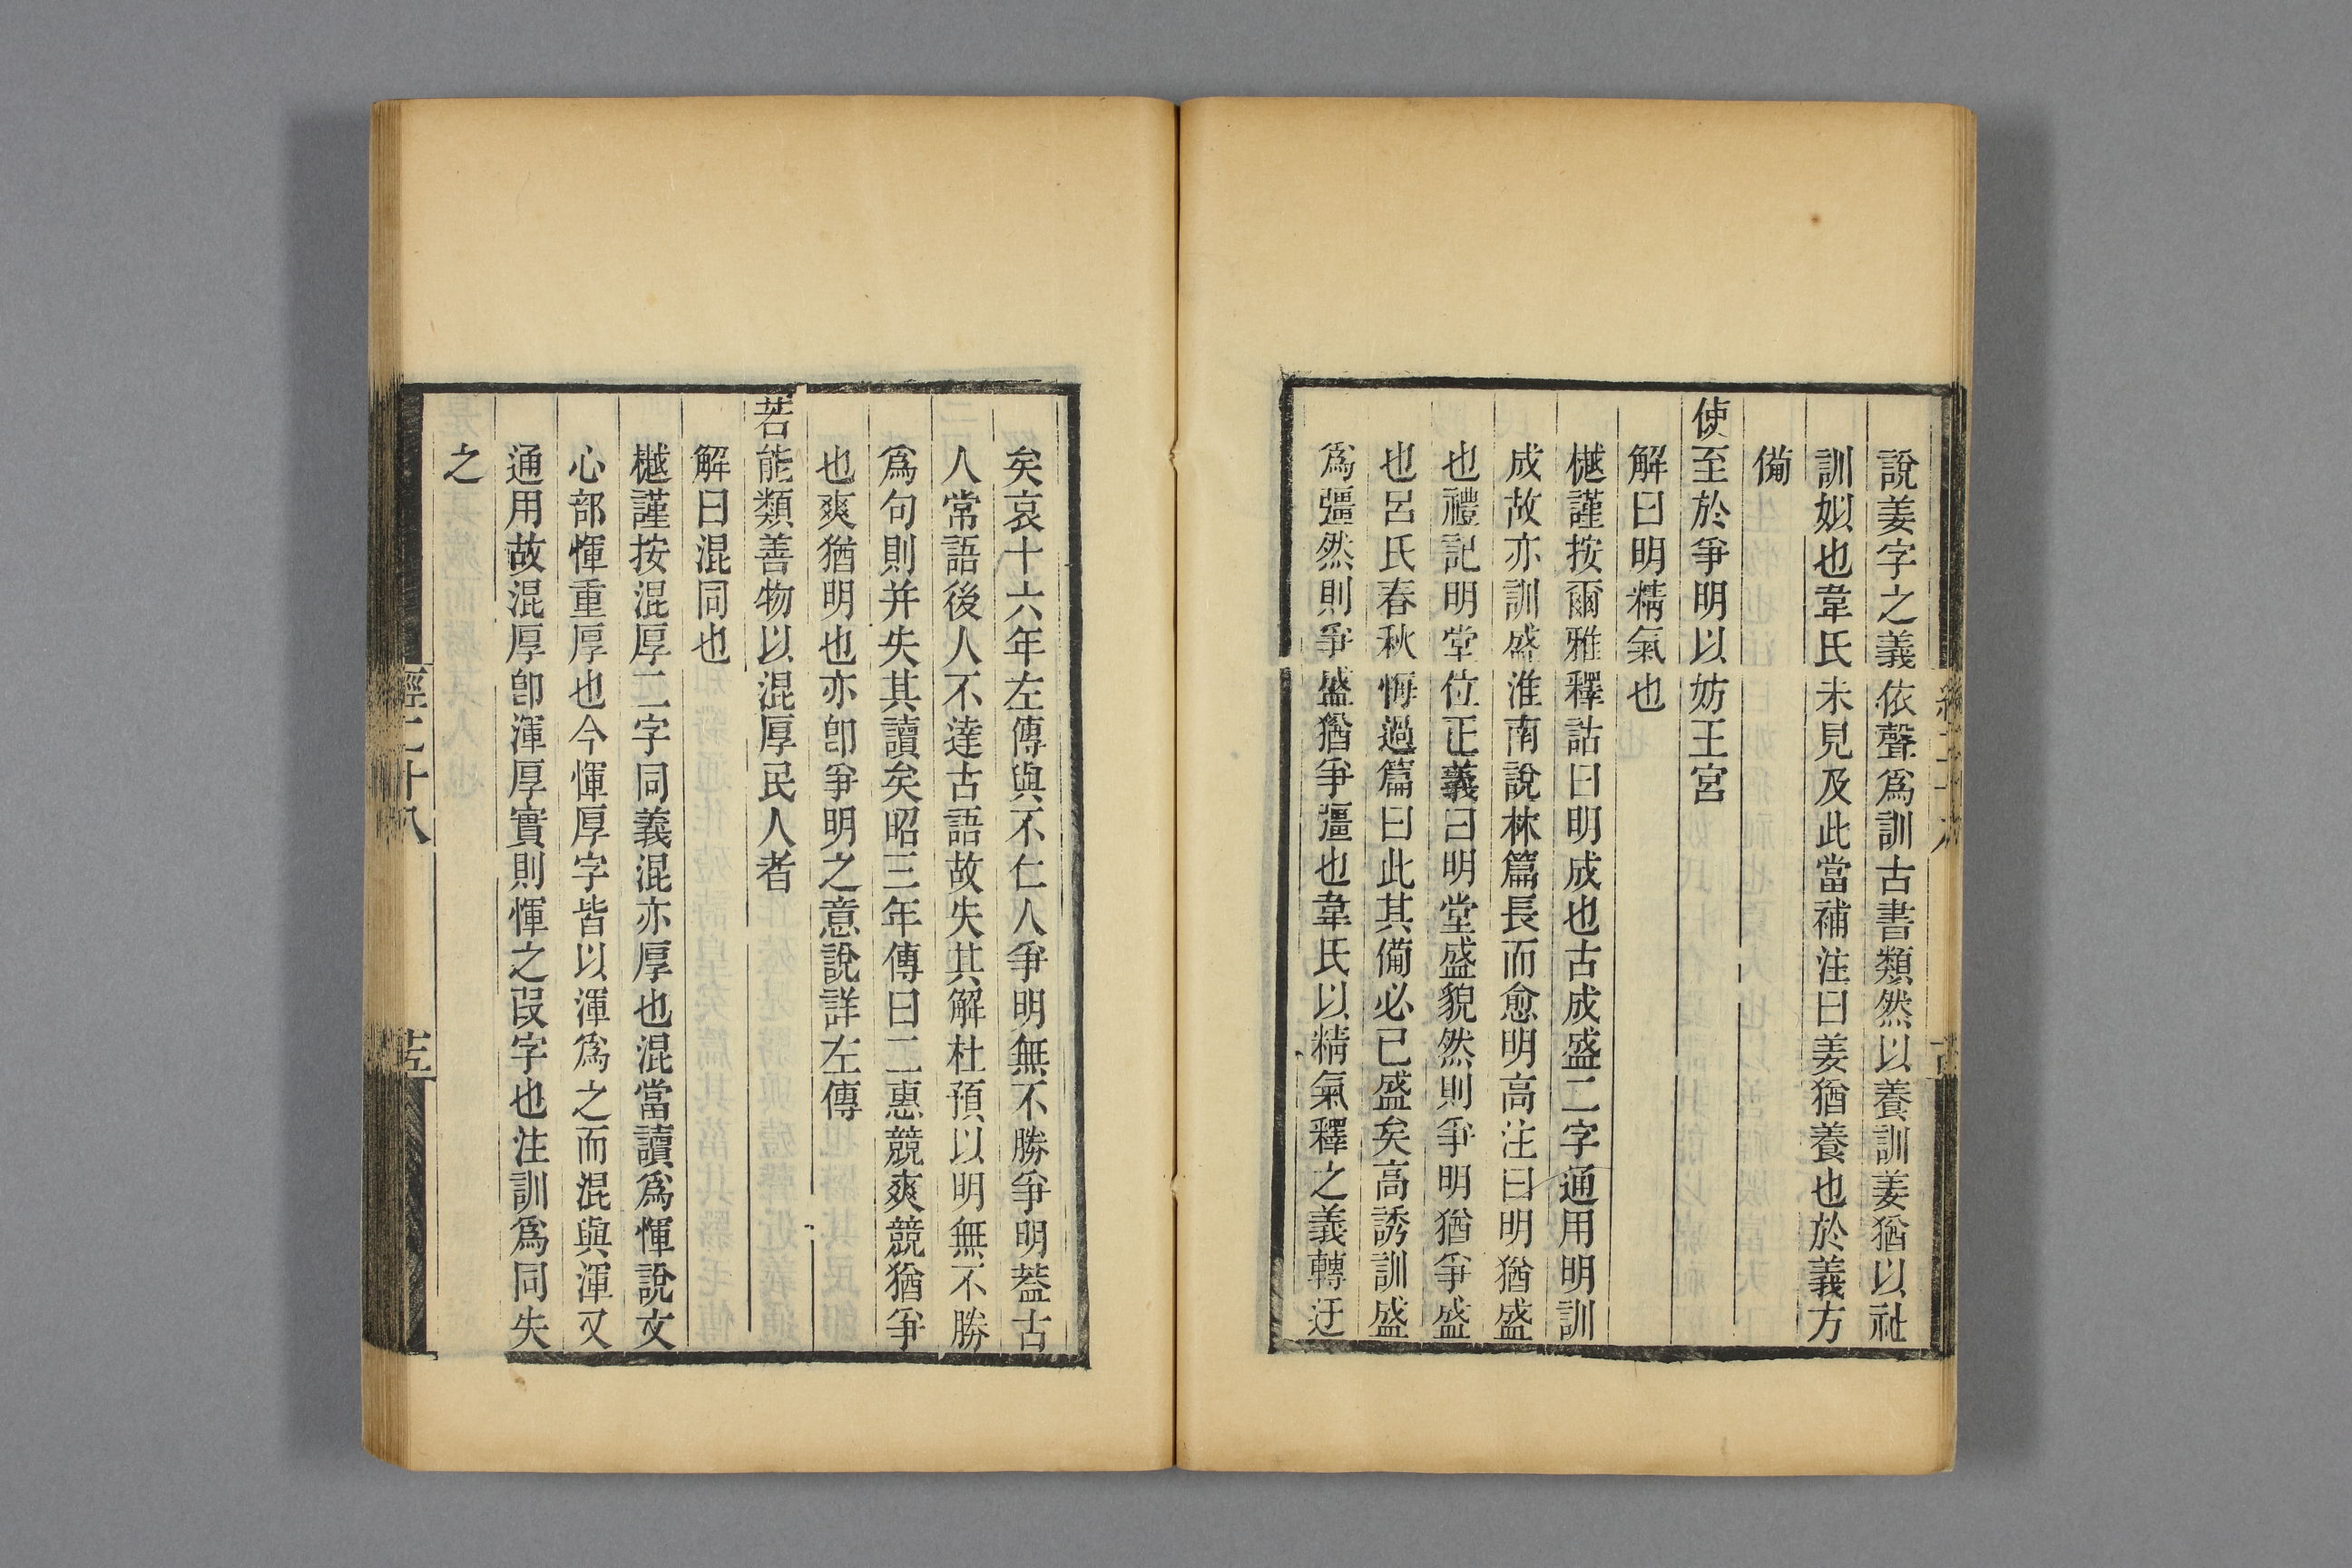 說姜字之義依聲爲訓古書類然以養訓姜猶以祉
訓姒也韋氏未見及此當補注曰姜猶養也於義方
備
使至於爭明以妨王宮
解曰明精氣也
樾謹按爾雅釋詁曰明成也古成盛二字通用明訓
成故亦訓盛淮南說林篇長而愈明高注曰明猶盛
也禮記明堂位正義曰明堂盛貌然則爭明猶爭盛
也呂氏春秋悔過篇曰此其備必已盛矣高誘訓盛
爲彊然則爭盛猶爭彊也韋氏以精氣釋之義轉迂
矣哀十六年左傳與不仁人爭明無不勝爭明葢古
人常語後人不達古語故失其解杜預以明無不勝
爲句則并失其讀矣昭三年傳曰二惠競爽競猶爭
也爽猶明也亦卽爭明之意說詳左傳
若能類善物以混厚民人者
解曰混同也
樾謹按混厚二字同義混亦厚也混當讀爲惲說文
心部惲重厚也今惲厚字皆以渾爲之而混與渾又
通用故混厚卽渾厚實則惲之叚字也注訓爲同失
之
經二十八
十五